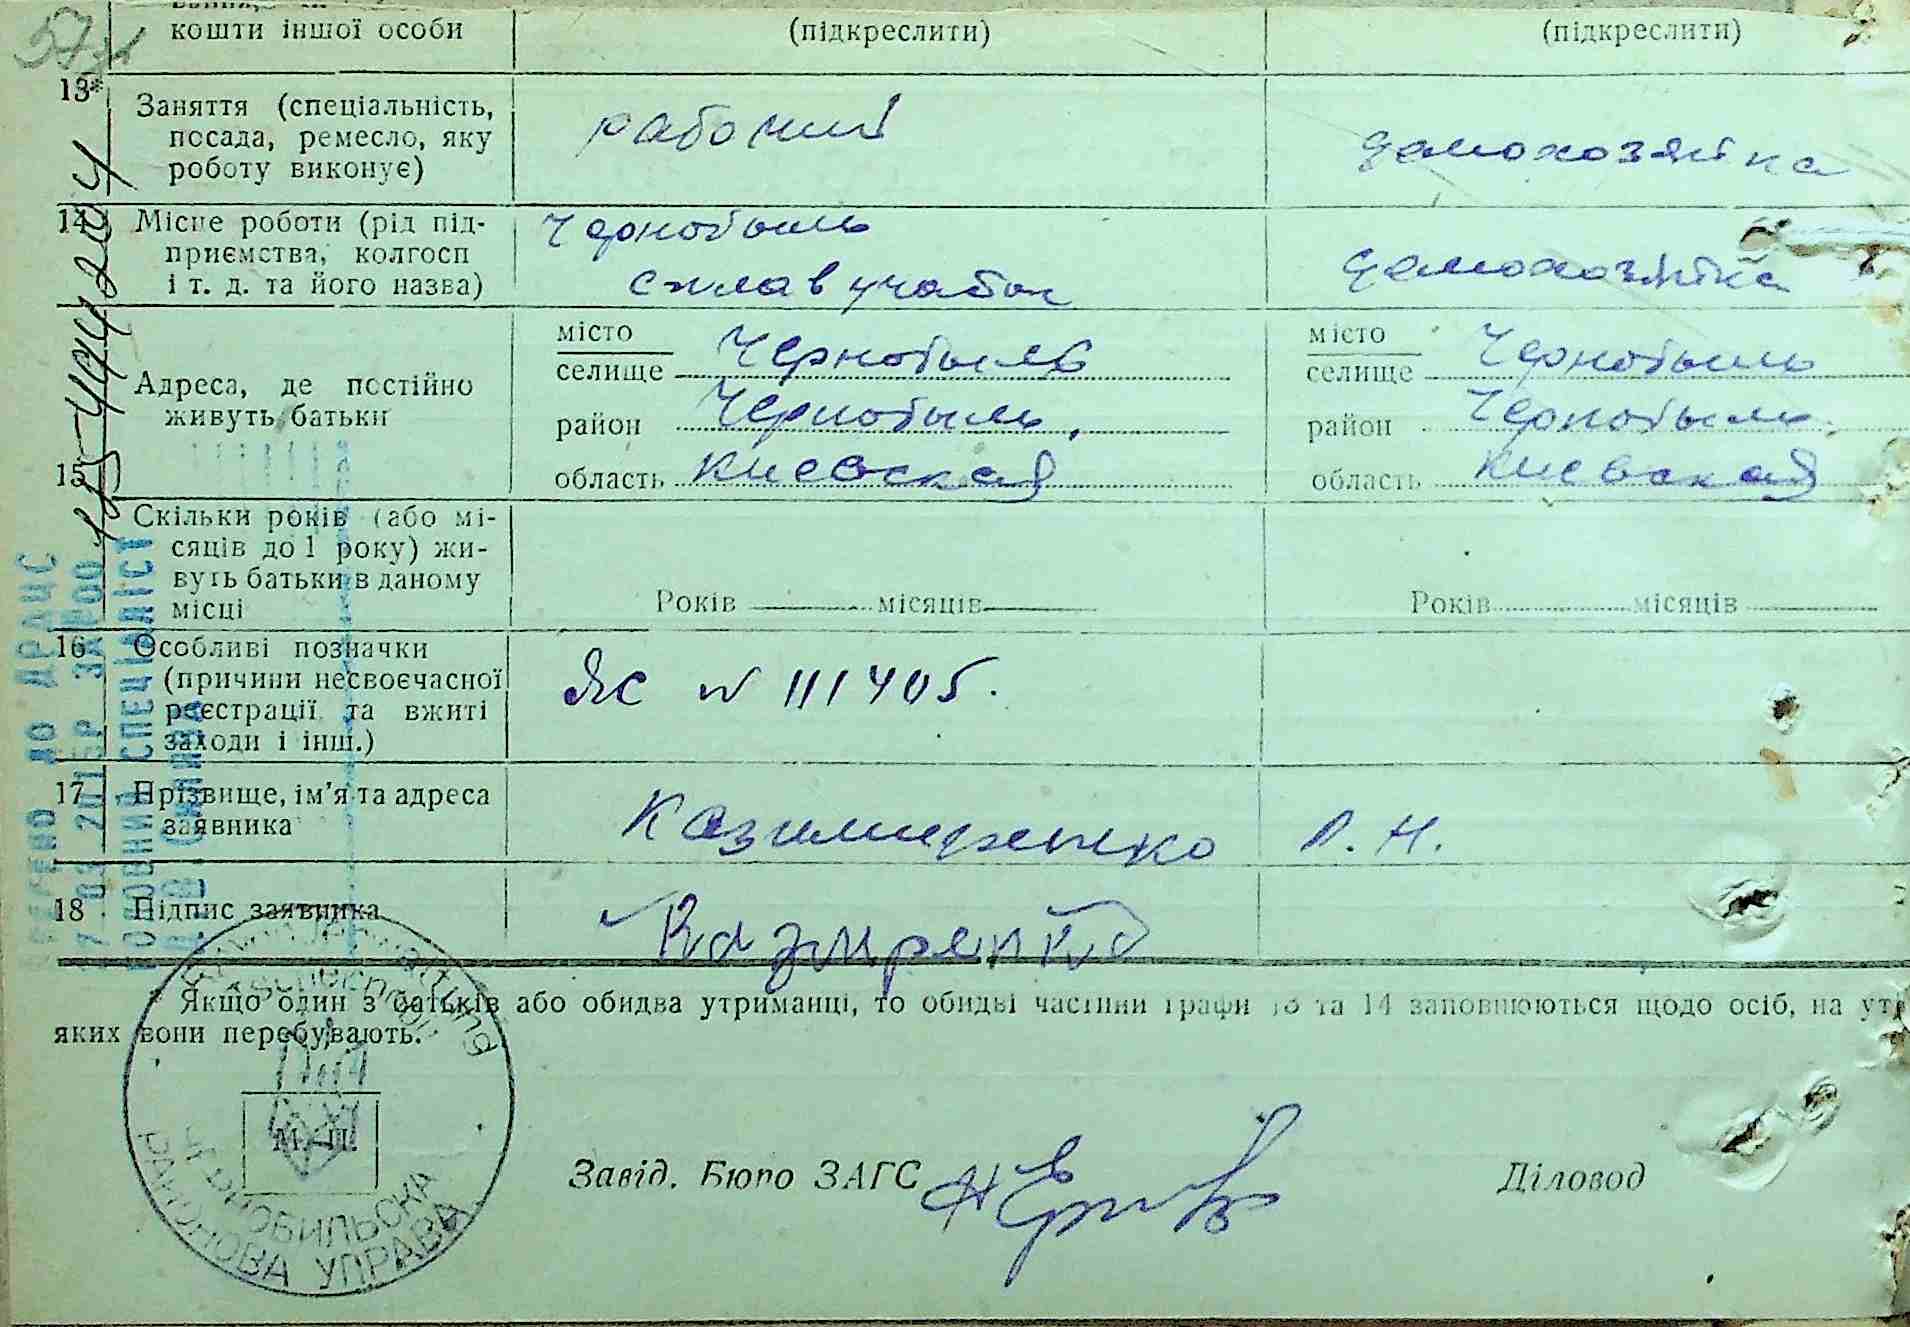 кошти іншої особи
(підкреслити)
(підкреслити)
13*
Заняття (спеціальність,
посада, ремесло, яку
роботу виконує)
рабочий
домохозяйка
14
Місце роботи (рід під-
приємства, колгосп
і т. д. та його назва)
Чернобыль
сплав участок
домохозяйка
Адреса, де постійно
живуть батьки
місто
селище Чернобыль
район Чернобыль,
область Киевская
місто
селище Чернобыль
район Чернобыль,
область Киевская
15
Скільки років (або мі-
сяців до 1 року) жи-
вуть батьки в даному
місці
Років місяців
Років місяців
16 Особливі позначки
(причини несвоєчасної
реєстрації та вжиті
заходи і інш.)
ЯС N 111405.
17 Прізвище, ім'я та адреса
заявника
Казимиренко
18 Підпис заявника
Казмиренко
* Якщо один з батьків або обидва утриманці, то обидві частини графи 13 та 14 заповнюються щодо осіб, на
яких вони перебувають.
М. П.
Завід. Бюро ЗАГС
Діловод
ЧОРНОБИЛЬСКА
РАЙОНОВА УПРАВА
ДО ДРАЦС
ГОЛОВНИЙ СПЕЦІАЛІСТ